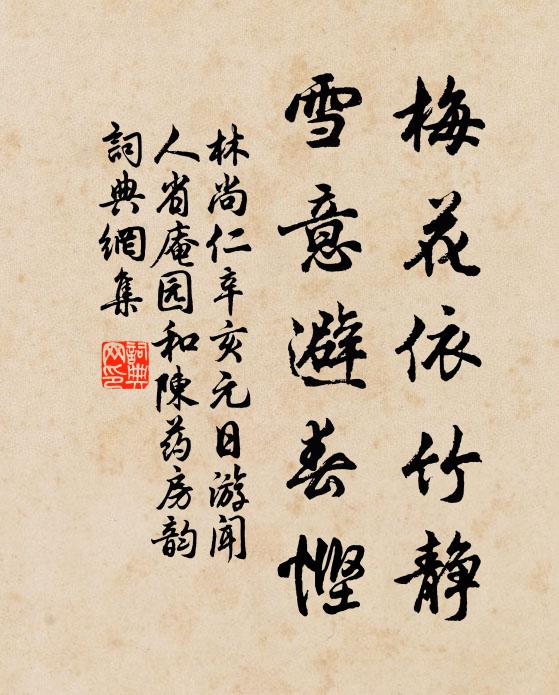 梅花依竹静
雪意避春悭
林尚仁辛亥元日游闻
人省庵园和陳药房韵
詞典網集
詞典网印